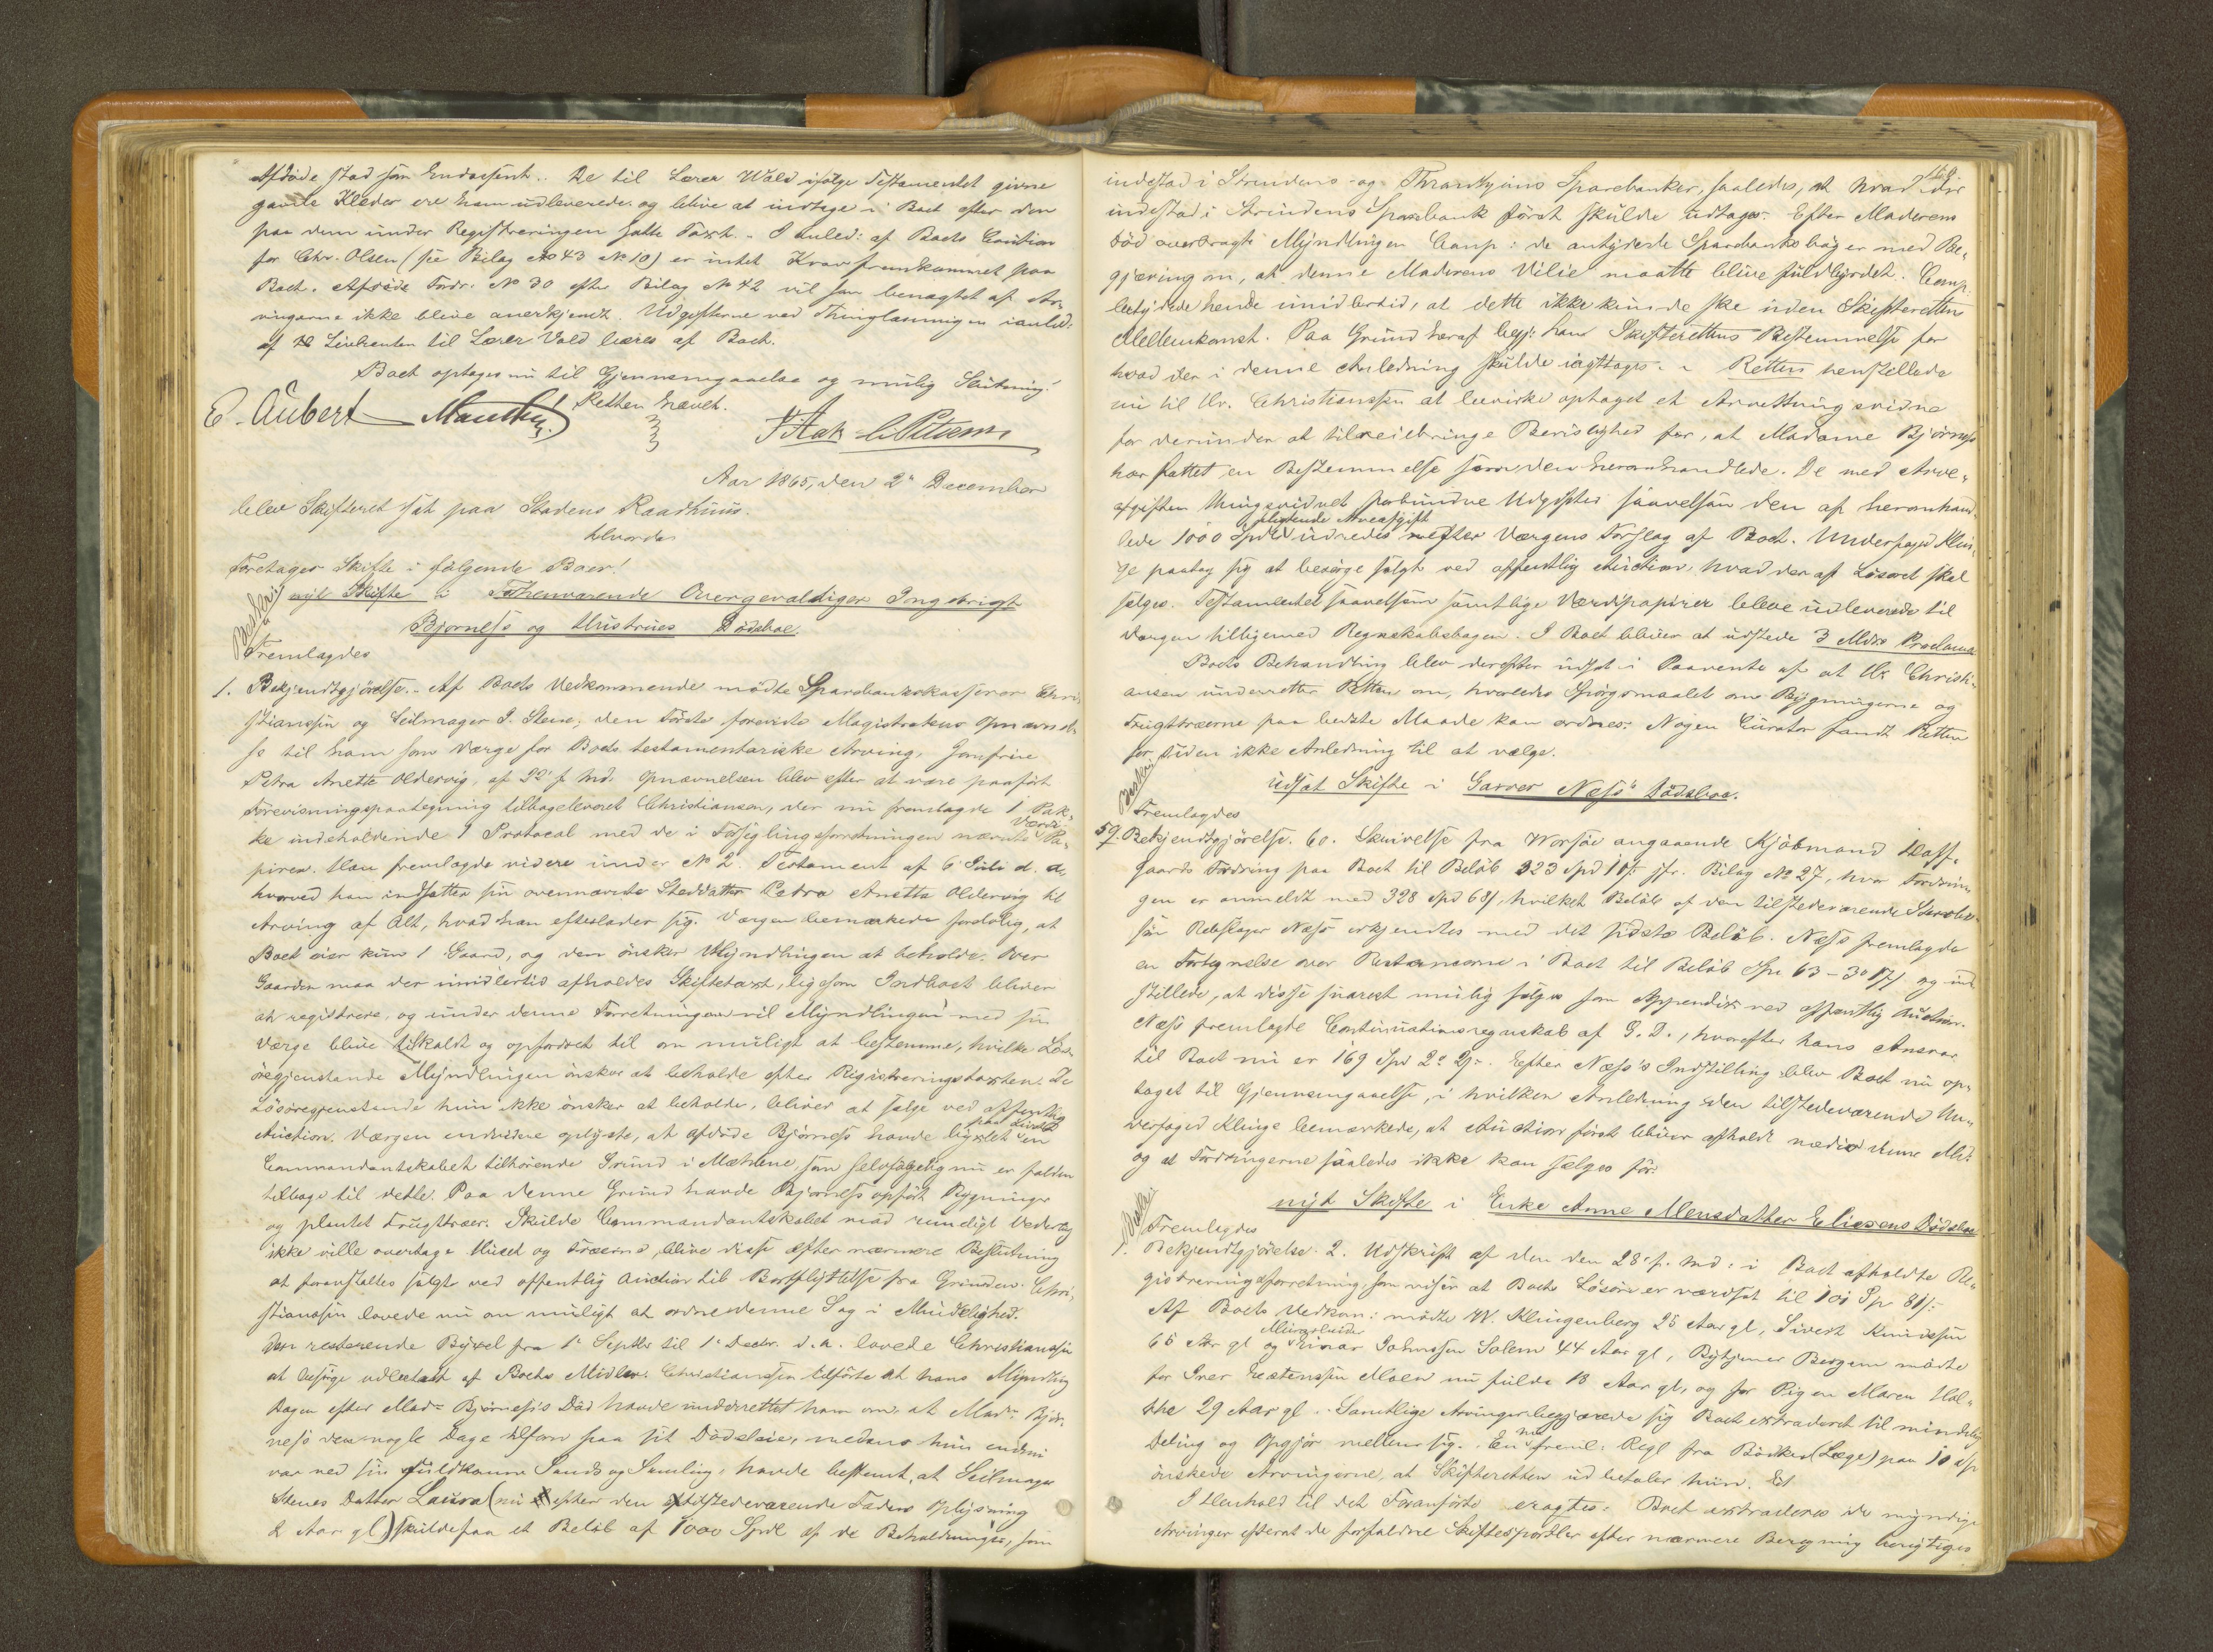 Afdøde stod som Endossent.. De til Lærer Wald ifølge Testamentet givne
gamle Klæder ere ham udleverede og blive at indtage i Boet efter den
paa dem under Registreringen satte Taxt. - I anled: af Boets Caution
for Chr. Olsen (see Bilag No 43 No 10) er intet Krav fremkommet paa
Boet. Afdøde Fordr. No 30 efter Bilag No 42 vil som benægtet af Ar-
vingerne ikke blive anerkjendt. Udgifterne ved Thinglæsningen i anled:
af Livrenten til Lærer Vold bæres af Boet.
Boet optages nu til Gjennemgaaelse og mulig Slutning.
Retten hævet.
E. Aubert
Aar 1865, den 2den December
blev Skifteret sat paa Stadens Raadhuus.
hvorda
Foretages Skifte i følgende Boer!
nyt Skifte i Forhenværende Overgevaldiger Ingebrigt
Bjørness og Hustrues Dødsboe.
Fremlagdes
1. Bekjendtgjørelse. - Af Boets Vedkommende mødte Sparebankskasserer Chri-
stiansen og Seilmager I. Stene; den Første foreviste Magistratens Opnævnel-
se til ham som Værge for Boets testamentariske Arving, Jomfrue
Petra Anette Oldervig, af 22' f. Md. Opnævnelsen blev efter at være paaført
Forevisningspaategning tilbageleveret Christiansen, der nu fremlagde 1 Pak-
ke indeholdende 1 Protocol med de i Forseglingsforretningen nævnte Værdi Pa-
pirer. Han fremlagde videre under No 2. Testament af 6 Juli d. A.
hvorved han indsatte sin ovennævnte Steddatter Petra Anette Oldervig til
Arving af Alt, hvad han efterlader sig. Værgen bemærkede foreløbig, at
Boet eier kun 1 Gaard, og den ønsker Myndlingen at beholde. Over
Gaarden maa der imidlertid afholdes Skiftetaxt, ligesom Indboet bliver
at registrere, og under denne Forretningen vil Myndlingen med sin
Værge blive tilkaldt og opfordret til om muligt at bestemme, hvilke Løs-
øregjenstande Myndlingen ønsker at beholde efter Registreringstaxten. De
Løsøregjenstande hun ikke ønsker at beholde, bliver at sælge ved offentlig
Auction. Værgen endvidere oplyste, at afdøde Bjørness havde bygslet en
Commandantskabet tilhørende Grund i Møllene, som selvfølgelig nu er falden
tilbage til dette. Paa denne Grund havde Bjørness opført Bygninger
og plantet Frugttræer. Skulde Commandantskabet mod rimeligt Vederlag
ikke ville overtage Huset og Træerne, blive disse efter nærmere Beslutning
at foranstaltes solgt ved offentlig Auction til Bortflyttelse fra Grunden. Chri-
stiansen lovede nu om muligt at ordne denne Sag i Mindelighed.
Den resterende Bygsel fra 1' Septbr til 1' Decbr. d. A. lovede Christiansen
at besørge udbetalt af Boets Midler. Christiansen tilførte at hans Myndling
Dagen efter Mad= Bjørness's Død havde underrettet ham om, at Mad= Bjør-
ness den nogle Dage tilforn paa sit Dødsleie, medens hun endnu
var ved sin fuldkomne Sands og Samling, havde bestemt, at Seilmager
Stenes Datter Laura (nu efter den tilstedeværende Faders Oplysning
2 Aar gl) skulde faa et Beløb af 1000 Spdl af de Beholdninger, som
169.
indestod i Strindens og Throndhjems Sparebanker, saaledes, at hvad der
indestod i Strindens Sparebank først skulde udtages. Efter Moderens
Død overbragte Myndlingen Comp: de antydede Sparebanksbøger med Be-
gjæring om, at denne Moderens Villie maatte blive fuldbyrdet. Comp.
betydede hende imidlertid, at dette ikke kunde ske uden Skifterettens
Mellemkomst. Paa Grund heraf begj: han Skifterettens Bestemmelse for
hvad der i denne Anledning skulde iagttages. - Retten henstillede
nu til Hr. Christianssen at bevirke optaget et Arvetthingsvidne
for derunder at tilveiebringe Bevislighed for, at Madame Bjørness
har fattet en Bestemmelse som den heromhandlede. De med Arve-
afgiften Thingsvidnet forbundne Udgifter saavelsom den af heromhand-
lede 1000 Spdl pligtende Arveafgift udredes efter Værgens Forslag af Boet. Underfoged Klin-
ge paatog sig at besørge solgt ved offentlig Auction, hvad der af Løsøret skal
sælges. Testamentet saavelsom samtlige Værdipapirer bleve udleverede til
Værgen tilligemed Regnskabsbogen. I Boet bliver at udstede 3 Mdrs Proclama
Boets Behandling blev derefter udsat i Paavente af at Hr Christi-
ansen underretter Retten om, hvorledes Spørgsmaalet om Bygningerne og
Frugttræerne paa bedste Maade kan ordnes. Nogen Curator fandt Retten
for Tiden ikke Anledning til at vælge.
udsat Skifte i Garver Næss' Dødsboe.
Fremlagdes
59. Bekjendtgjørelse. 60. Skrivelse fra Worsøe angaaende Kjøbmand Hoff-
gaards Fordring paa Boet til Beløb 323 Spd jfr. Bilag No 27, hvor Fordrin-
gen er anmeldt med 328 Spd 68/, hvilket Beløb af den tilstedeværende
Rebslager Næss erkjendtes med det sidste Beløb. Næss fremlagde
en Fortegnelse over Restancerne i Boet til Beløb Spd 63 - 3 og ind-
stillede, at disse snarest mulig sælges som Appendix ved offentlig Auction.
Næss fremlagde Continuationsregnskab af G. D., hvorefter hans Ansvar
til Boet nu er 169 Spd 2. Efter Næss's Indstilling blev Boet nu op-
taget til Gjennemgaaelse, i hvilken Anledning den tilstedeværende Un-
derfoged Klinge bemærkede, at Auction først bliver afholdt medio denne Md.
og at Fordringerne saaledes ikke kan sælges før.
nyt Skifte i Enke Anne Monsdatter Eliesens Dødsboe
Fremlagdes
1. Bekjendtgjørelse. 2. Udskrift af den den 28' f. Md: i Boet afholdte Re-
gistreringsforretning, som viser at Boets Løsøre er værdsat til 101 Sp 81/-
Af Boets Vedkom: mødte W. Klingenberg 25 Aar gl, Sivert Knudssen
65 Aar gl og Muurarbeider Johnssen Solem 44 Aar gl, Bytjener Bergem mødte
for Iver Moen nu fulde 18 Aar gl, og for Pigen Maren
29 Aar gl.. Samtlige Arvinger begjærede sig Boet extraderet til mindelig
Deling og Opgjør mellem sig. En nu freml: Regl fra Bødker (Læge) paa 10
ønskede Arvingerne, at Skifteretten udbetaler hiin.
I Henhold til det Foranførte eragtes: Boet extraderes de myndige
Arvinger efterat de forfaldne Skiftesportler efter nærmere Beregning berigtiges